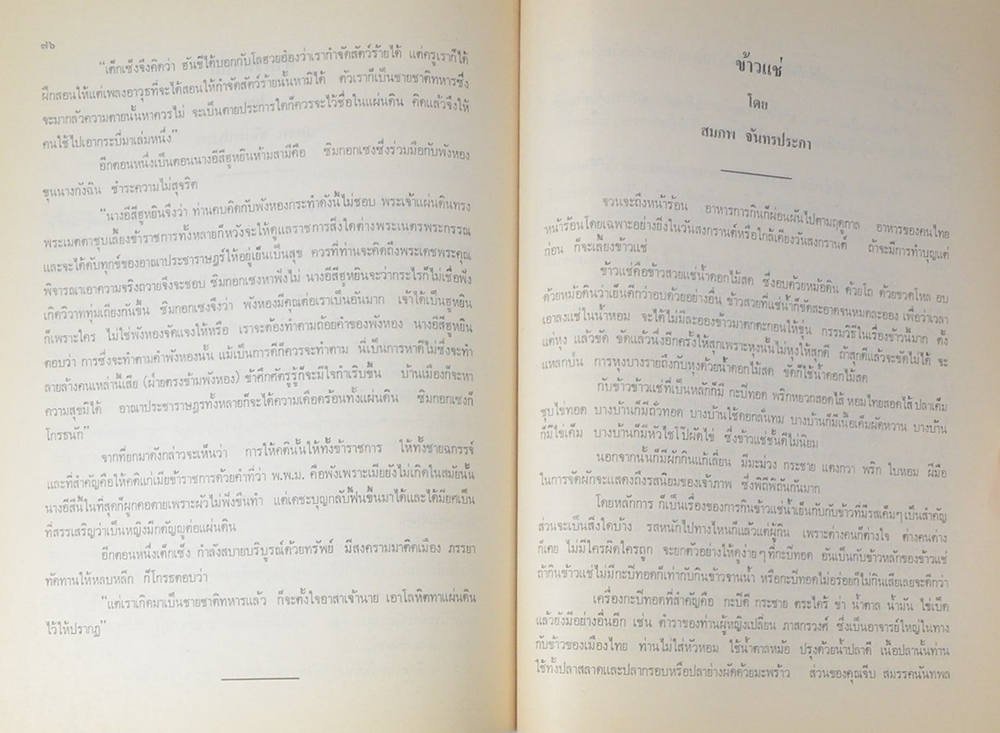 ๗๖
"เต็กเซ็งจึงคิดว่า ฮันซีได้บอกกับโลฮวยฮ้องว่าเรากำจัดสัตว์ร้ายได้ แต่ครูเราก็ได้
ฝึกสอนให้แต่เพลงอาวุธที่จะได้สอนให้กำจัดสัตว์ร้ายนั้นหามิได้ ตัวเราก็เป็นชายชาติทหารซึ่ง
จะมากลัวความตายนั้นหาควรไม่ จะเป็นตายประการใดก็ควรจะไว้ชื่อในแผ่นดิน คิดแล้วจึงให้
คนใช้ไปเอากระบี่มาเล่มหนึ่ง"
อีกตอนหนึ่งเป็นตอนนางอีสีฮูหยินห้ามสามีคือ ซิมกอกเซงซึ่งร่วมมือกับพังหอง
ขุนนางกังฉิน ชำระความไม่สุจริต
"นางอีสีฮูหยินจึงว่า ท่านคบคิดกับพังหองกระทำดังนี้ไม่ชอบ พระเจ้าแผ่นดินทรง
พระเมตตาชุบเลี้ยงข้าราชการทั้งหลายก็หวังจะให้ดูแลราชการสิ่งใดต่างพระเนตรพระกรรณ
และจะได้ดับทุกข์ของอาณาประชาราษฎร์ให้อยู่เย็นเป็นสุข ควรที่ท่านจะคิดถึงพระเดชพระคุณ
พิจารณาเอาความจริงถวายจึงจะชอบ ซิมกอกเซงหาฟังไม่ นางอีสีฮูหยินจะว่ากระไรก็ไม่เชื่อฟัง
เกิดวิวาททุ่มเถียงกันขึ้น ซิมกอกเซงจึงว่า พังหองมีคุณต่อเราเป็นอันมาก เจ้าได้เป็นฮูหยิน
ก็เพราะใคร ไม่ใช่พังหองจัดแจงให้หรือ เราจะต้องทำตามถ้อยคำของพังหอง นางอีสีฮูหยิน
ตอบว่า การซึ่งจะทำตามคำพังหองนั้น แม้เป็นการดีก็ควรจะทำตาม นี่เป็นการหาดีไม่ซึ่งจะทำ
ลายล้างคนเหล่านี้เสีย (ฝ่ายตรงข้ามพังหอง) ข้าศึกศัตรูรู้ก็จะมีใจกำเริบขึ้น บ้านเมืองก็จะหา
ความสุขมิได้ อาณาประชาราษฎรทั้งหลายก็จะได้ความเดือดร้อนทั้งแผ่นดิน ซิมกอกเซงก็
โกรธนัก"
จากที่ยกมาดังกล่าวจะเห็นว่า การให้คตินั้นให้ทั้งข้าราชการ ให้ทั้งชายฉกรรจ์
และที่สำคัญคือให้คติแก่เมียข้าราชการด้วยคำที่ว่า พ.พ.ม. คือพังเพราะเมียยังไม่เกิดในสมัยนั้น
นางอีสีนั้นในที่สุดก็ผูกคอตายเพราะผัวไม่ฟังขืนทำ แต่เดชะบุญกลับฟื้นขึ้นมาได้และได้มียศเป็น
ที่สรรเสริญว่าเป็นหญิงมีกตัญญูต่อแผ่นดิน
อีกตอนหนึ่งเต็กเซ็ง กำลังสบายบริบูรณ์ด้วยทรัพย์ มีสงครามมาติดเมือง ภรรยา
ทัดทานให้หลบหลีก ก็โกรธตอบว่า
"แต่เราเกิดมาเป็นชายชาติทหารแล้ว ก็จะตั้งใจอาสาเจ้านาย เอาโลหิตทาแผ่นดิน
ไว้ให้ปรากฏ"
ข้าวแช่
โดย
สมภพ จันทรประภา
จวนจะถึงหน้าร้อน อาหารการกินก็ผ่อนผันไปตามฤดูกาล อาหารของคนไทย
หน้าร้อนโดยเฉพาะอย่างยิ่งในวันสงกรานต์หรือใกล้เคียงวันสงกรานต์ ถ้าจะมีการทำบุญแต่
ก่อน ก็จะเลี้ยงข้าวแช่
ข้าวแช่คือข้าวสวยแช่น้ำดอกไม้สด ซึ่งอบด้วยหม้อดิน ด้วยโถ ด้วยขวดโหล อบ
ด้วยหม้อดินว่าเย็นดีกว่าอบด้วยอย่างอื่น ข้าวสวยที่แช่น้ำก็ขัดสะอาดจนหมดละออง เพื่อว่าเวลา
เอาลงแช่ในน้ำหอม จะได้ไม่มีละอองข้าวมาตกตะกอนให้ขุ่น กรรมวิธีในเรื่องข้าวนั้นมาก ตั้ง
แต่หุง แล้วขัด ขัดแล้วนึ่งอีกครั้งให้สุกเพราะหุงนั้นไม่หุงให้สุกดี ถ้าสุกดีแล้วจะขัดไม่ได้ จะ
แหลกป่น การหุงบางรายถึงกับหุงด้วยน้ำดอกไม้สด ขัดก็ใช้น้ำดอกไม้สด
กับข้าวข้าวแช่ที่เป็นหลักก็มี กะปิทอด พริกหยวกสอดไส้ หอมไทยสอดไส้ปลาเค็ม
ชุบไข่ทอด บางบ้านก็มีถั่วทอด บางบ้านใช้ดอกลั่นทม บางบ้านก็มีเนื้อเค็มผัดหวาน บางบ้าน
ก็มีไข่เค็ม บางบ้านก็มีหัวไชโป๊ผัดไข่ ซึ่งข้าวแช่ชั้นดีไม่นิยม
นอกจากนั้นก็มีผักกินแก้เลี่ยน มีมะม่วง กระชาย แตงกวา พริก ใบหอม ฝีมือ
ในการจัดผักจะแสดงถึงรสนิยมของเจ้าภาพ ซึ่งพิถีพิถันกันมาก
โดยหลักการ ก็เป็นเรื่องของการกินข้าวแช่น้ำเย็นกับกับข้าวที่มีรสเค็มๆ เป็นสำคัญ
ส่วนจะเป็นสิ่งใดบ้าง รสหนักไปทางไหนก็แล้วแต่ผู้กิน เพราะต่างคนก็ต่างใจ ต่างคนต่าง
ก็เคย ไม่มีใครผิดใครถูก จะยกตัวอย่างให้ดูง่าย ๆ ที่กะปิทอด อันเป็นกับข้าวหลักของข้าวแช่
ถ้ากินข้าวแช่ไม่มีกะปิทอดก็เท่ากับกินข้าวจานน้ำ หรือกะปิทอดไม่อร่อยก็ไม่กินเสียเลยจะดีกว่า
เครื่องกะปิทอดที่สำคัญคือ กะปิดี กระชาย ตระไคร้ ข่า น้ำตาล น้ำมัน ไข่เป็ด
แล้วยังมีอย่างอื่นอีก เช่น ตำราของท่านผู้หญิงเปลี่ยน ภาสกรวงศ์ ซึ่งเป็นอาจารย์ใหญ่ในทาง
กับข้าวของเมืองไทย ท่านไม่ใส่หัวหอม ใช้น้ำตาลหม้อ ปรุงด้วยน้ำปลาดี เนื้อปลานั้นท่าน
ใช้ทั้งปลาสลาดและปลากรอบหรือปลาย่างผัดด้วยมะพร้าว ส่วนของคุณจีบ สมรรคนันทพล